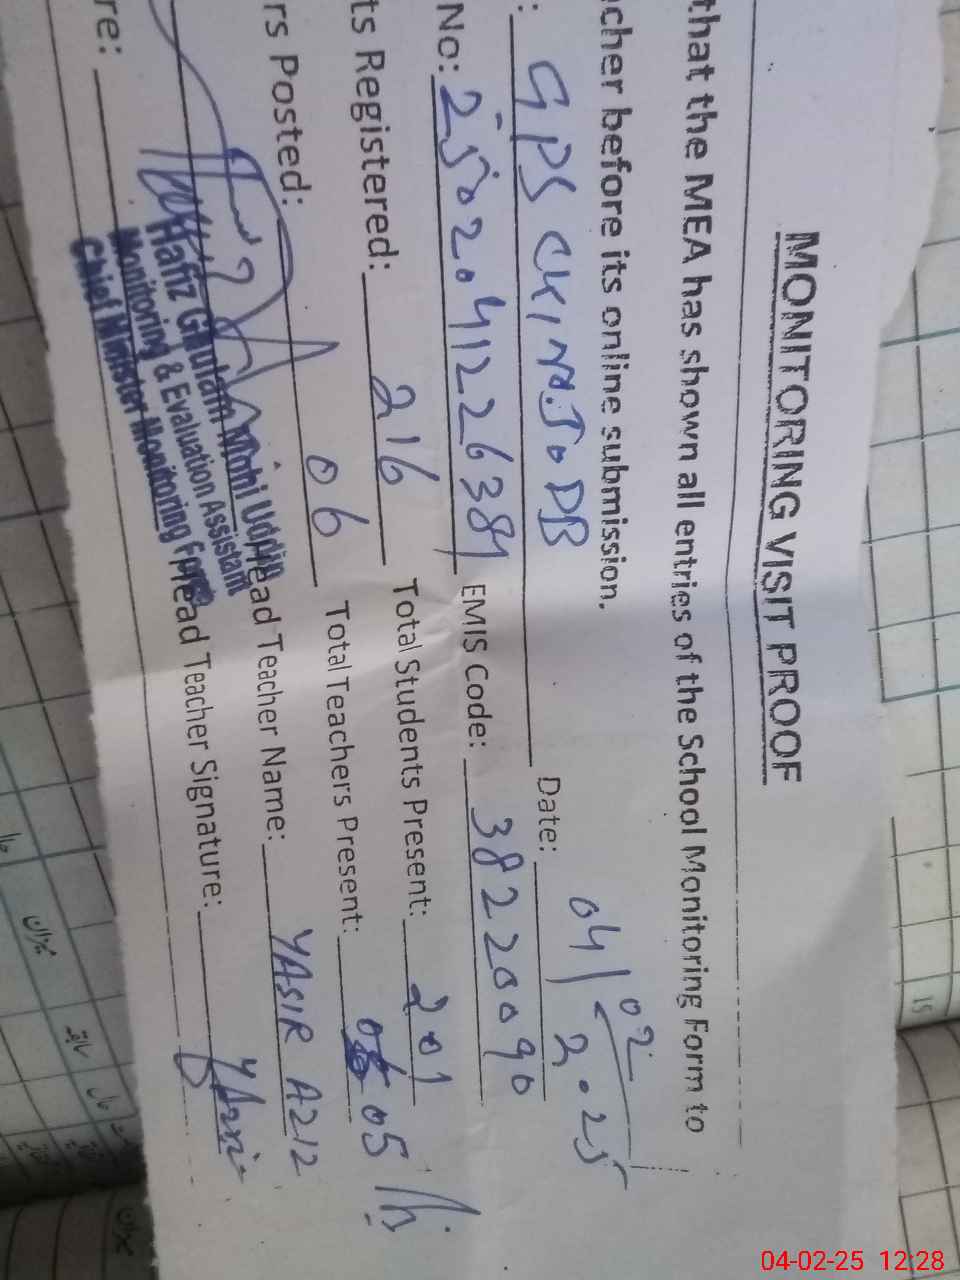 MONITORING VISIT PROOF
that the MEA has shown all entries of the School Monitoring Form to
cher before its online submission.
: GPS Date: 04/02/2025
No: EMIS Code: 38220090
ts Registered: 216 Total Students Present: 201
rs Posted: 06 Total Teachers Present: 05
Head Teacher Name: YASIR AZIZ
re: Head Teacher Signature:
Hafiz Ghulam Mohi Uddin
Monitoring & Evaluation Assistant
Chief Minister Monitoring Force
15
04-02-25 12:28